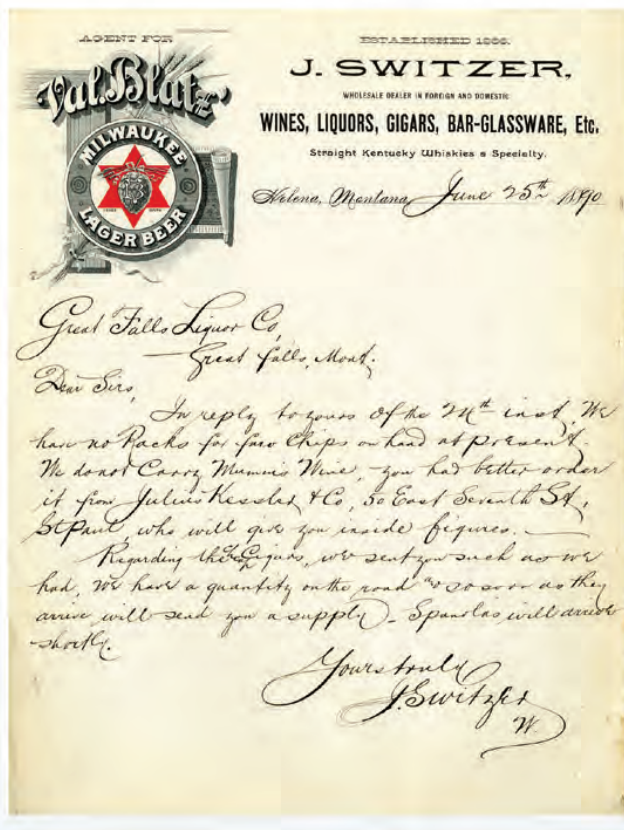 AGENT FOR
Val. Blatz'
MILWAUKEE
LAGER BEER
ESTABLISHED 1866.
J. SWITZER,
WHOLESALE DEALER IN FOREIGN AND DOMESTIC
WINES, LIQUORS, CIGARS, BAR-GLASSWARE, Etc.
Straight Kentucky Whiskies a Specialty.
Helena, Montana, June 25th 1890
Great Falls Liquor Co,
Great Falls, Mont.
Dear Sirs,
In reply to yours of the 24th inst, We
have no Racks for faro Chips on hand at present.
We do not Carry Mumm's Wine, you had better order
it from Julius Kessler & Co, 50 East Seventh St,
St Paul, who will give you inside figures.
Regarding the Cigars, we sent you such as we
had, We have a quantity on the road & so soon as they
arrive will send you a supply. will arrive
shortly.
Yours truly
J. Switzer
W.